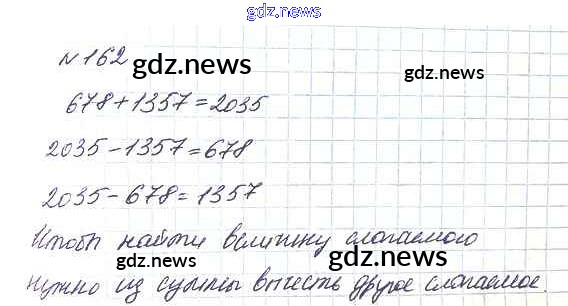 gdz.news
№162
gdz.news
gdz.news
678+1357=2035
2035-1357=678
gdz.news
2035-678=1357
gdz.news
Чтобы найти величину слагаемого
нужно из суммы вычесть другое слагаемое.